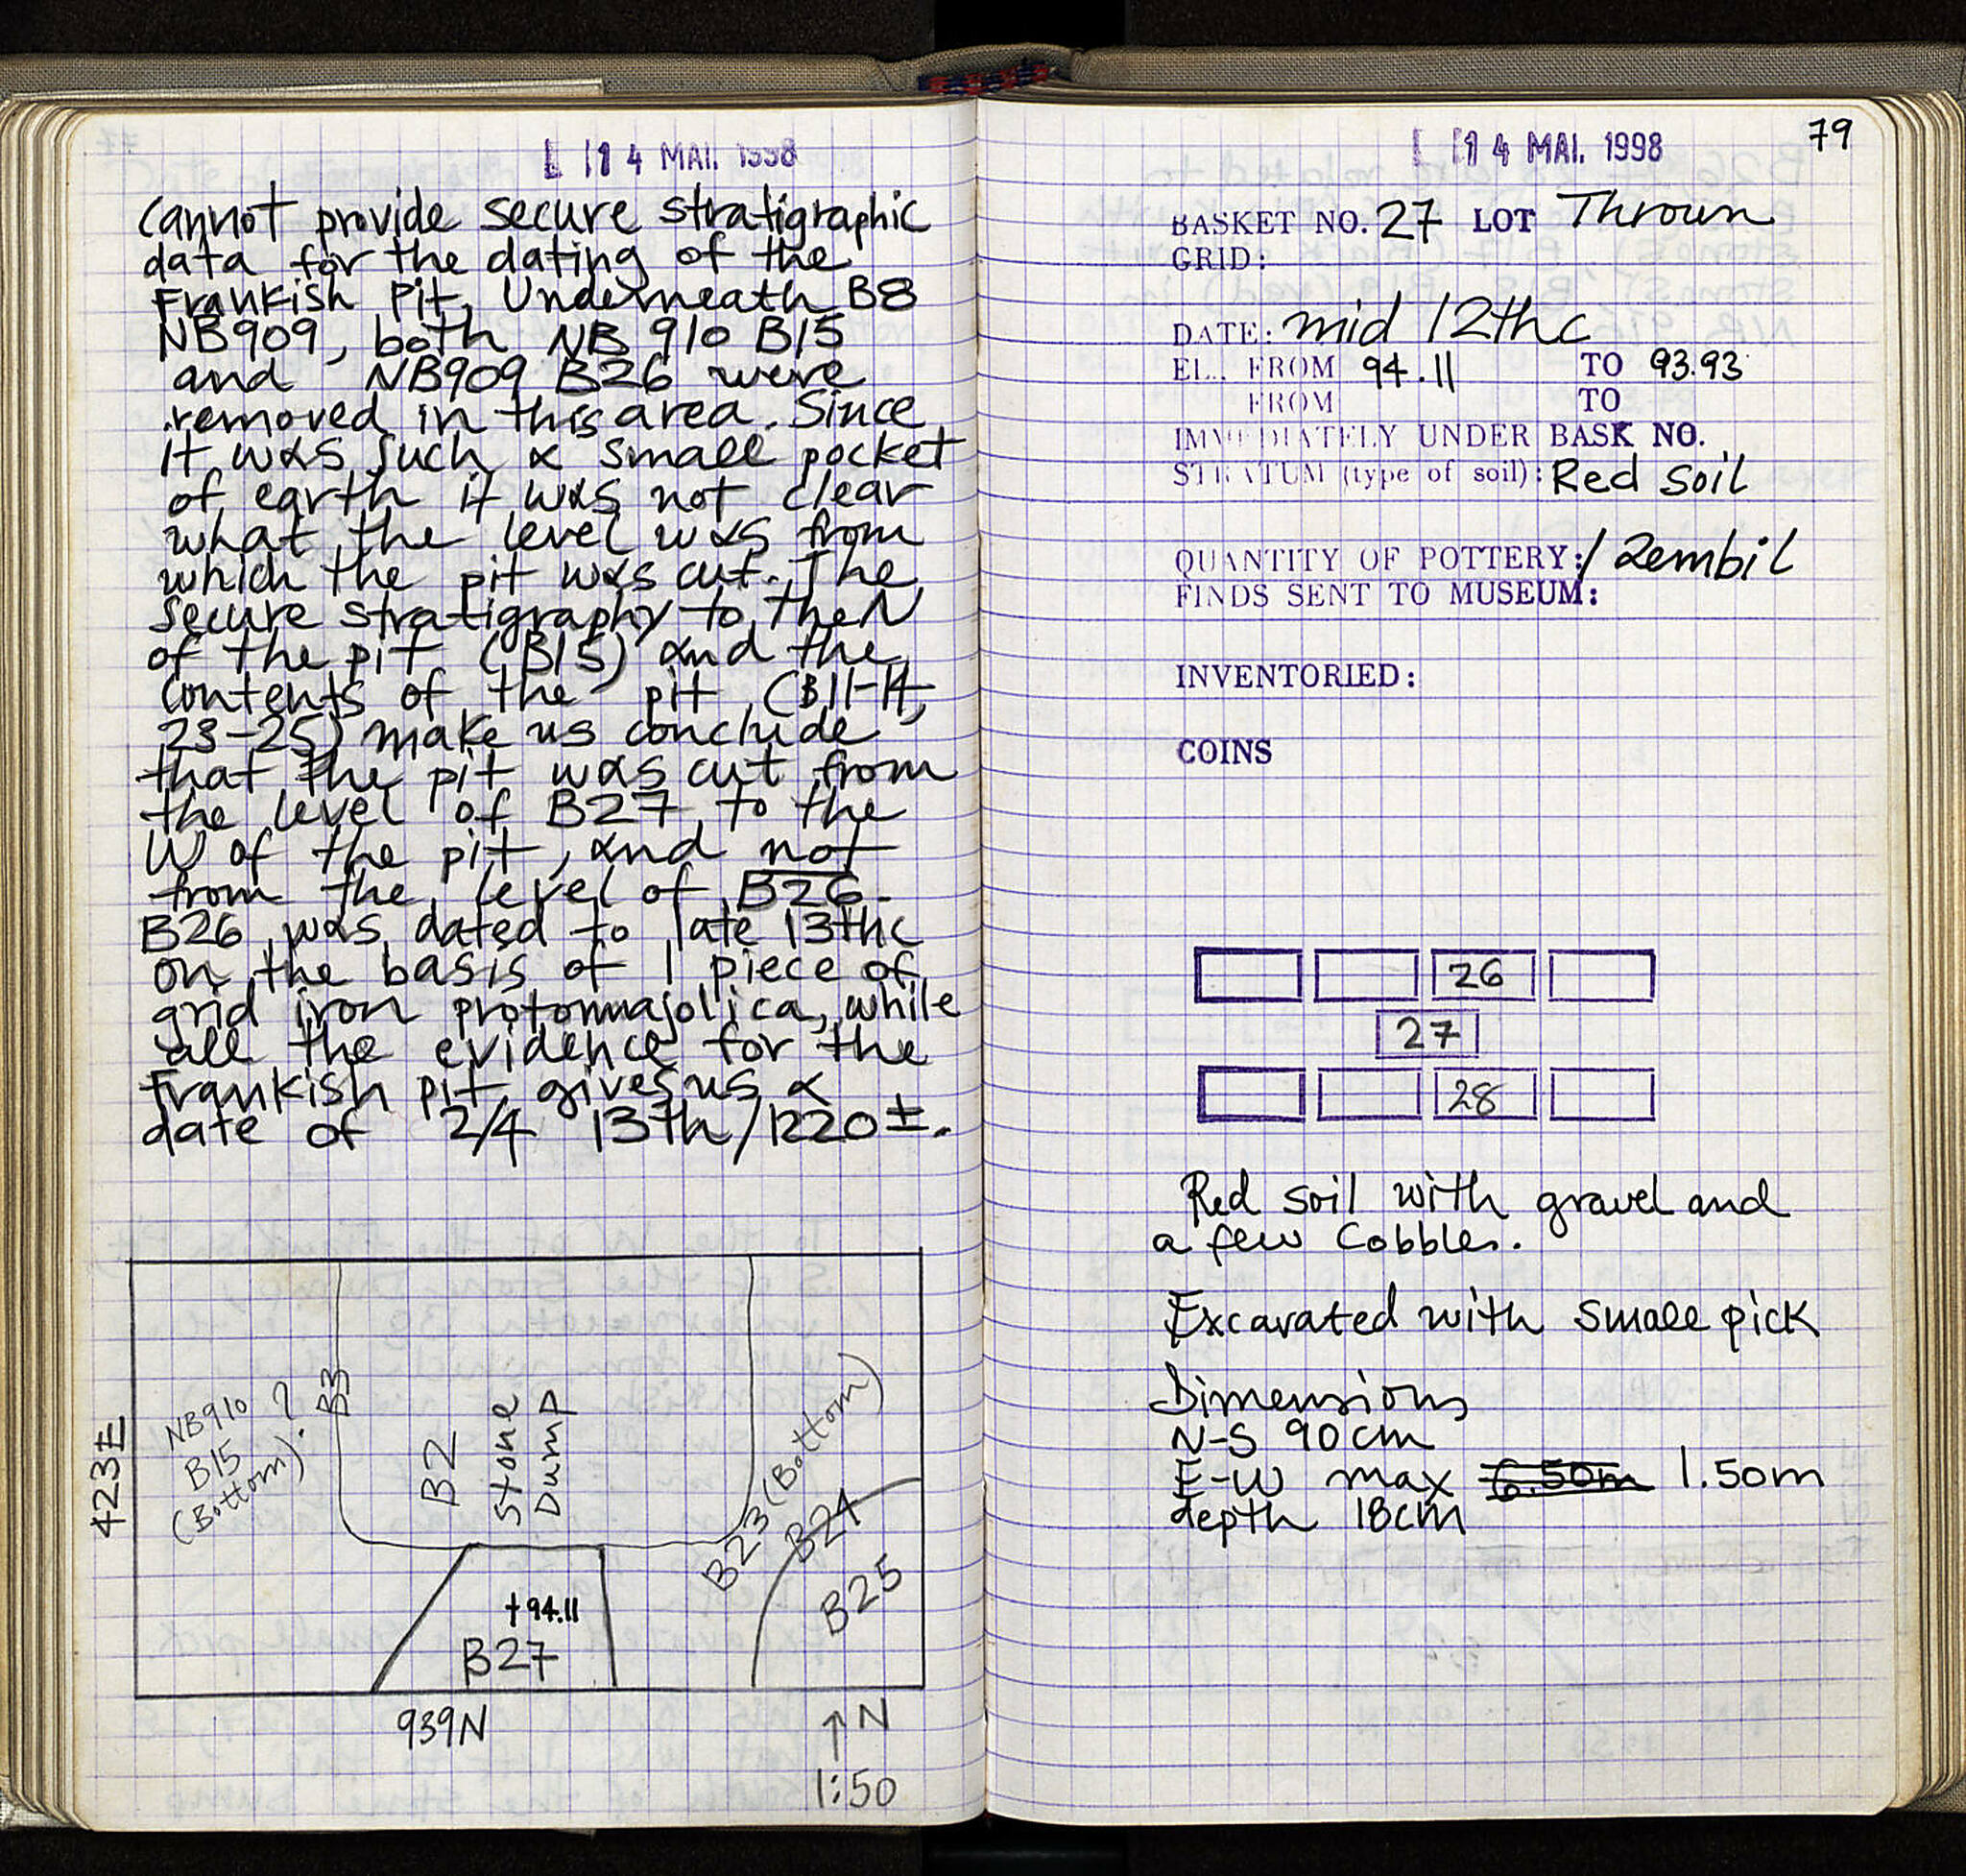 14 MAI. 1998
cannot provide secure stratigraphic
data for the dating of the
Frankish Pit. Underneath B8
NB909, both NB 910 B15
and NB909 B26 were
removed in this area. Since
it was such a small pocket
of earth it was not clear
what the level was from
which the pit was cut. The
secure stratigraphy to the N
of the pit (B15) and the
contents of the pit (B11-14,
23-25) make us conclude
that the pit was cut from
the level of B27 to the
W of the pit, and not
from the level of B26.
B26 was dated to late 13thc
on the basis of 1 piece of
grid iron protomajolica, while
all the evidence for the
Frankish pit gives us a
date of 2/4 13th/1220±.
423E
NB910 ?
B15
(Bottom)
B3
B2
Stone
Dump
B23 (Bottom)
B24
B25
+94.11
B27
939N
↑N
1:50
14 MAI. 1998
79
BASKET NO. 27 LOT Thrown
GRID:
DATE: mid 12thc
EL. FROM 94.11 TO 93.93
FROM TO
IMMEDIATELY UNDER BASK NO.
STRATUM (type of soil): Red soil
QUANTITY OF POTTERY: 1 zembil
FINDS SENT TO MUSEUM:
INVENTORIED:
COINS
26
27
28
Red soil with gravel and
a few cobbles.
Excavated with small pick
Dimensions
N-S 90cm
E-W max 6.50m 1.50m
depth 18cm